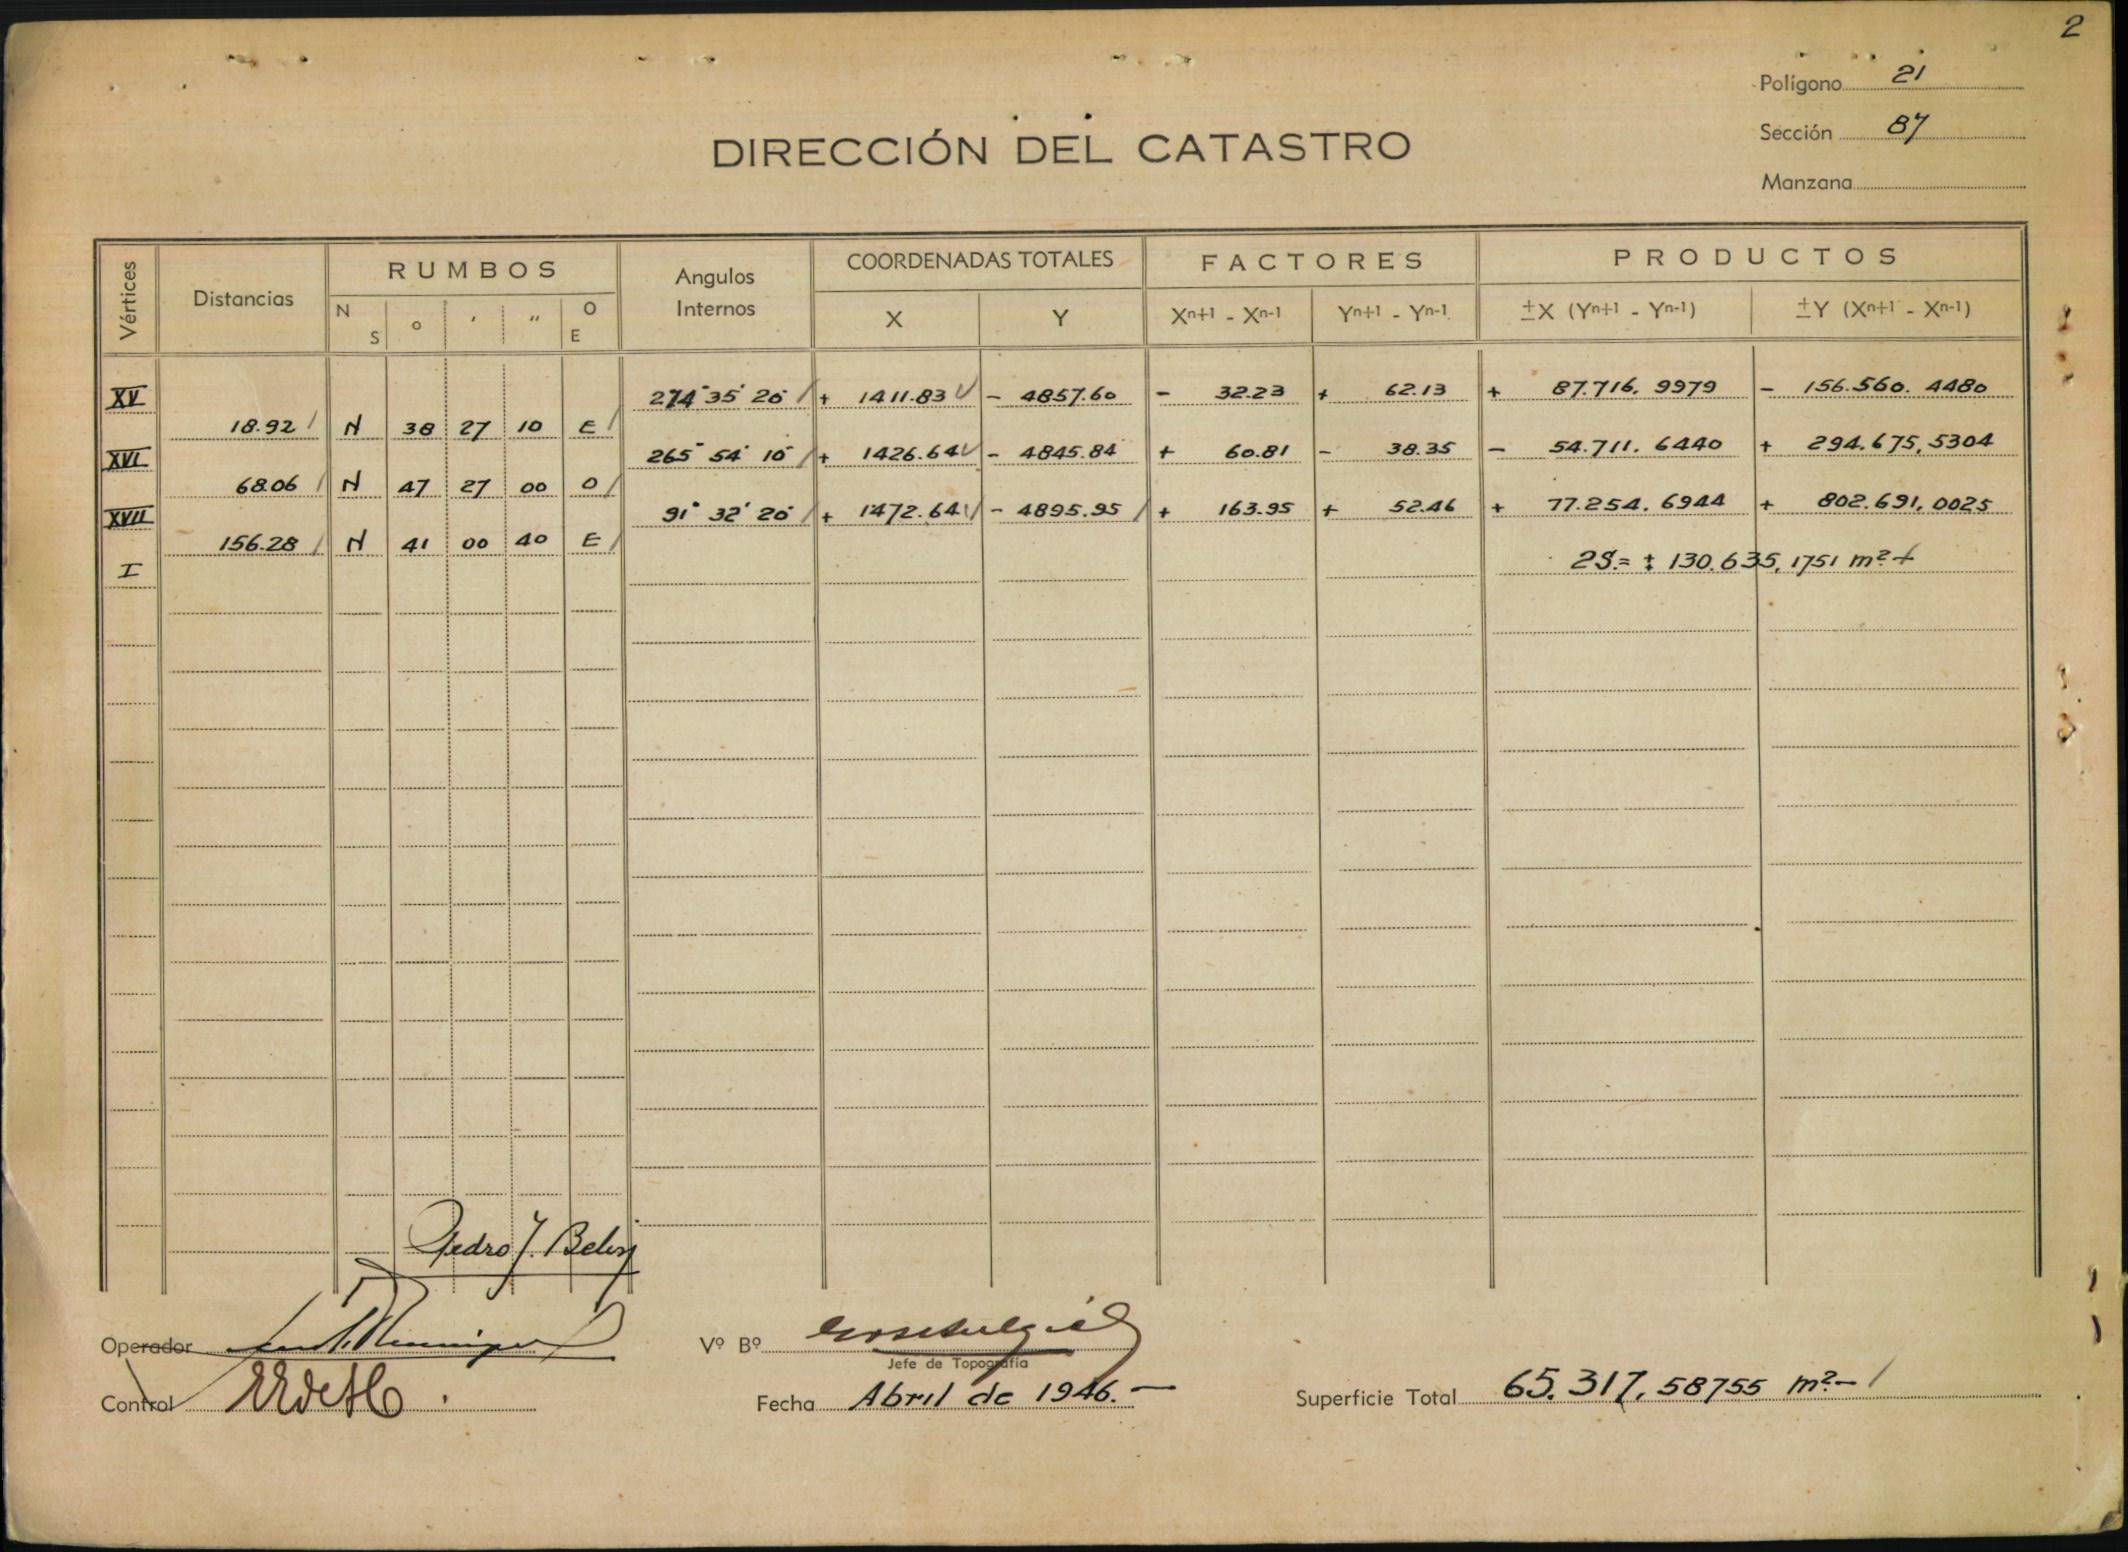 2
Polígono 21
Sección 87
Manzana
DIRECCIÓN DEL CATASTRO
Vértices
Distancias
RUMBOS
N S ° ′ ″ O E
Angulos Internos
COORDENADAS TOTALES
X Y
FACTORES
Xn+1 - Xn-1 Yn+1 - Yn-1
PRODUCTOS
±X (Yn+1 - Yn-1) ±Y (Xn+1 - Xn-1)
XV 274° 35' 20" + 1411.83 - 4857.60 - 32.23 + 62.13 + 87.716.9979 - 156.560.4480
18.92 N 38 27 10 E
XVI 265° 54' 10" + 1426.64 - 4845.84 + 60.81 - 38.35 - 54.711.6440 + 294.675,5304
68.06 N 47 27 00 O
XVII 91° 32' 20" + 1472.64 - 4895.95 + 163.95 + 52.46 + 77.254.6944 + 802.691,0025
156.28 N 41 00 40 E
I 2S.= ± 130.635,1751 m²
Pedro J.
Operador
Vº Bº
Jefe de Topografía
Control
Fecha Abril de 1946.-
Superficie Total 65.317,58755 m².-